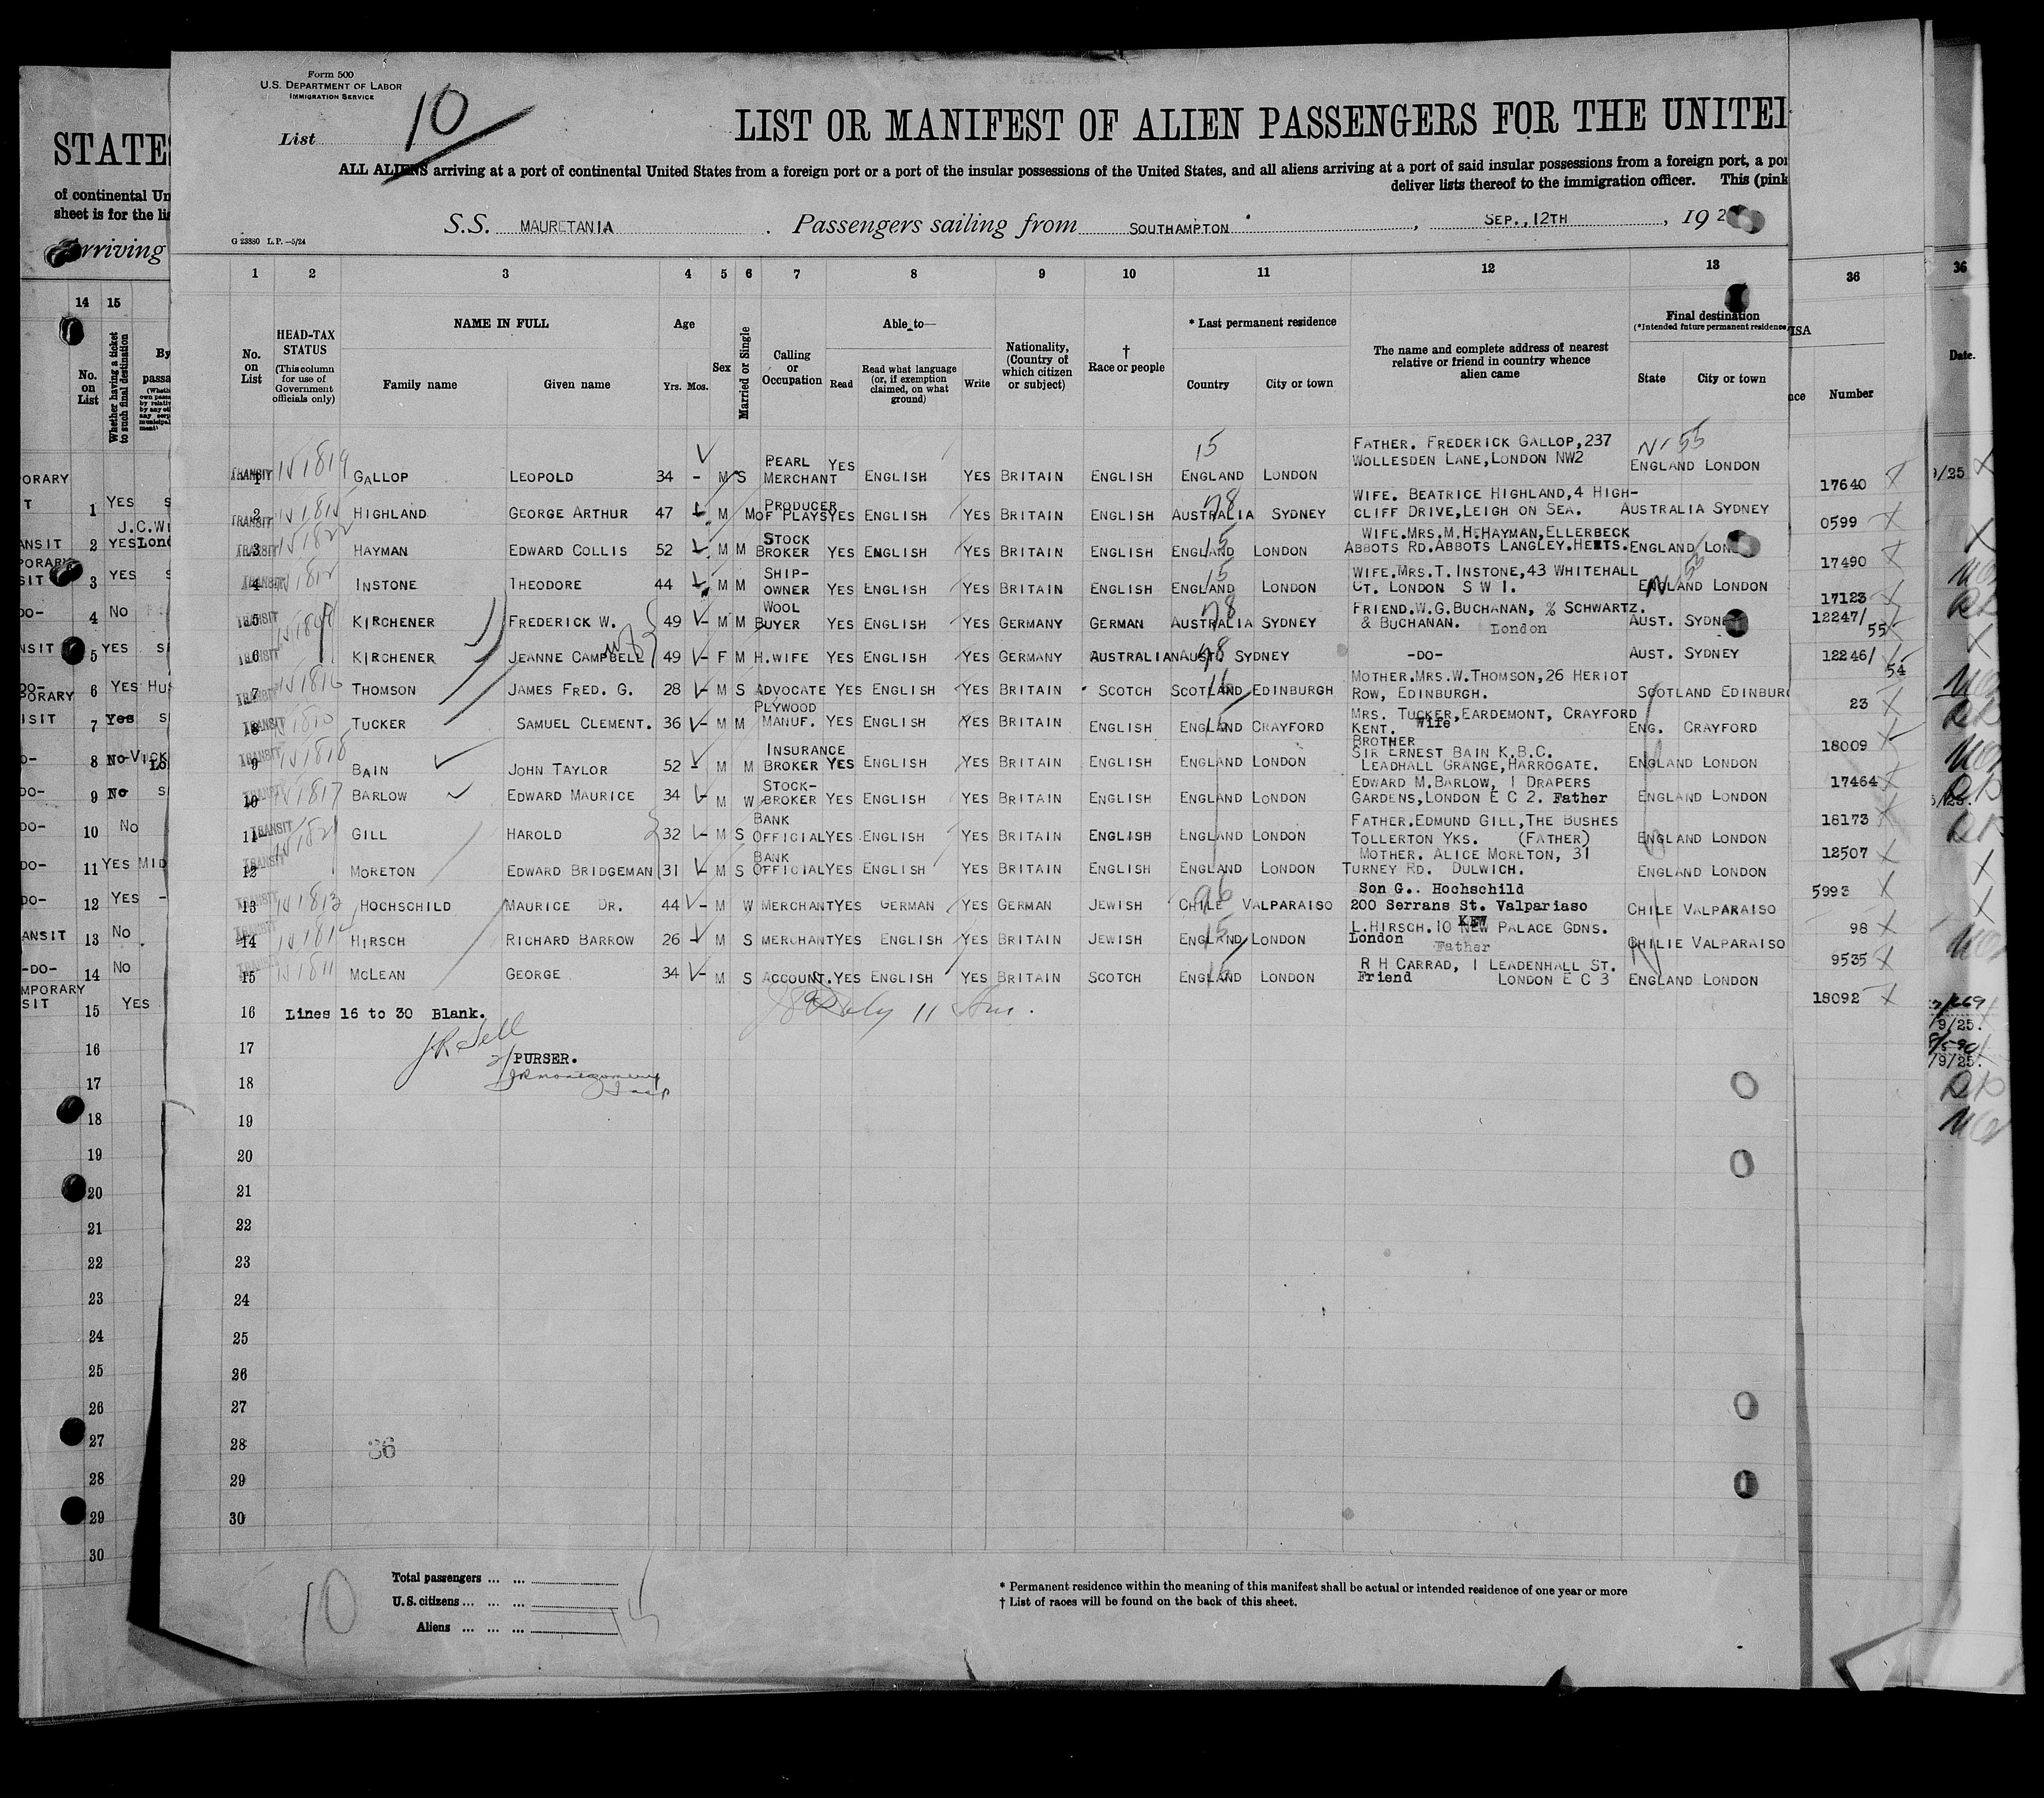 Form 500
U.S. DEPARTMENT OF LABOR
IMMIGRATION SERVICE
List 10
LIST OR MANIFEST OF ALIEN PASSENGERS FOR THE UNITE
ALL ALIENS arriving at a port of continental United States from a foreign port or a port of the insular possessions of the United States, and all aliens arriving at a port of said insular possessions from a foreign port, a
deliver lists thereof to the immigration officer. This (pink
S.S. MAURETANIA. Passengers sailing from SOUTHAMPTON, SEP., 12TH, 192
G 23880 L.P.—5/24
1 2 3 4 5 6 7 8 9 10 11 12 13
No. on List
HEAD-TAX STATUS (This column for use of Government officials only)
NAME IN FULL
Family name Given name
Age
Yrs. Mos.
Sex
Married or Single
Calling or Occupation
Able to—
Read
Read what language (or, if exemption claimed, on what ground)
Write
Nationality, (Country of which citizen or subject)
† Race or people
* Last permanent residence
Country City or town
The name and complete address of nearest relative or friend in country whence alien came
Final destination
(*Intended future permanent residence
State City or town
36
Number
1 TRANSIT GALLOP LEOPOLD 34 - M S PEARL MERCHANT YES ENGLISH YES BRITAIN ENGLISH ENGLAND LONDON FATHER. FREDERICK GALLOP,237 WOLLESDEN LANE,LONDON NW2 ENGLAND LONDON 17640
2 TRANSIT HIGHLAND GEORGE ARTHUR 47 M M PRODUCER OF PLAYS YES ENGLISH YES BRITAIN ENGLISH AUSTRALIA SYDNEY WIFE. BEATRICE HIGHLAND,4 HIGH- CLIFF DRIVE,LEIGH ON SEA. AUSTRALIA SYDNEY 0599
3 TRANSIT HAYMAN EDWARD COLLIS 52 M M STOCK BROKER YES ENGLISH YES BRITAIN ENGLISH ENGLAND LONDON WIFE.MRS.M.H.HAYMAN,ELLERBECK ABBOTS RD.ABBOTS LANGLEY.HERTS. ENGLAND LON 17490
4 TRANSIT INSTONE THEODORE 44 M M SHIP- OWNER YES ENGLISH YES BRITAIN ENGLISH ENGLAND LONDON WIFE.MRS.T. INSTONE,43 WHITEHALL CT. LONDON S W I. ENGLAND LONDON 17123
5 TRANSIT KIRCHENER FREDERICK W. 49 M M WOOL BUYER YES ENGLISH YES GERMANY GERMAN AUSTRALIA SYDNEY FRIEND.W.G.BUCHANAN, % SCHWARTZ. & BUCHANAN. London AUST. SYDNEY 12247/ 55
6 TRANSIT KIRCHENER JEANNE CAMPBELL 49 F M H.WIFE YES ENGLISH YES GERMANY AUSTRALIAN AUST. SYDNEY -DO- AUST. SYDNEY 12246/ 54
7 TRANSIT THOMSON JAMES FRED. G. 28 M S ADVOCATE YES ENGLISH YES BRITAIN SCOTCH SCOTLAND EDINBURGH MOTHER.MRS.W.THOMSON,26 HERIOT ROW, EDINBURGH. SCOTLAND EDINBUR 23
8 TRANSIT TUCKER SAMUEL CLEMENT. 36 M M PLYWOOD MANUF. YES ENGLISH YES BRITAIN ENGLISH ENGLAND CRAYFORD MRS. TUCKER,EARDEMONT, CRAYFORD KENT. Wife ENG. CRAYFORD 18009
9 TRANSIT BAIN JOHN TAYLOR 52 M M INSURANCE BROKER YES ENGLISH YES BRITAIN ENGLISH ENGLAND LONDON BROTHER SIR ERNEST BAIN K.B.C. LEADHALL GRANGE,HARROGATE. ENGLAND LONDON 17464
10 TRANSIT BARLOW EDWARD MAURICE 34 M W STOCK- BROKER YES ENGLISH YES BRITAIN ENGLISH ENGLAND LONDON EDWARD M.BARLOW, I DRAPERS GARDENS,LONDON E C 2. Father ENGLAND LONDON 18173
11 TRANSIT GILL HAROLD 32 M S BANK OFFICIAL YES ENGLISH YES BRITAIN ENGLISH ENGLAND LONDON FATHER.EDMUND GILL,THE BUSHES TOLLERTON YKS. (FATHER) ENGLAND LONDON 12507
12 TRANSIT MORETON EDWARD BRIDGEMAN 31 M S BANK OFFICIAL YES ENGLISH YES BRITAIN ENGLISH ENGLAND LONDON MOTHER. ALICE MORETON, 31 TURNEY RD. DULWICH. ENGLAND LONDON 5993
13 TRANSIT HOCHSCHILD MAURICE DR. 44 M W MERCHANT YES GERMAN YES GERMAN JEWISH CHILE VALPARAISO Son G.. Hochschild 200 Serrans St. Valpariaso CHILE VALPARAISO 98
14 TRANSIT HIRSCH RICHARD BARROW 26 M S MERCHANT YES ENGLISH YES BRITAIN JEWISH ENGLAND LONDON L.HIRSCH.10 KEW PALACE GDNS. London Father CHILIE VALPARAISO 9535
15 TRANSIT MCLEAN GEORGE 34 M S ACCOUNT. YES ENGLISH YES BRITAIN SCOTCH ENGLAND LONDON R H CARRAD, I LEADENHALL ST. Friend LONDON E C 3 ENGLAND LONDON 18092
16 Lines 16 to 30 Blank.
17
PURSER.
18
19
20
21
22
23
24
25
26
27
28
86
29
30
10
Total passengers
U.S. citizens
Aliens 15
* Permanent residence within the meaning of this manifest shall be actual or intended residence of one year or more
† List of races will be found on the back of this sheet.
STATES
of continental Un
sheet is for the li
rriving
14 15
No. on List
Whether having a ticket to such final destination
1 YES
2 YES
3 YES
4 No
5 YES
6 YES
7 Yes
8 No
9 No
10 No
11 YES
12 YES
13 No
14 No
15 YES
16
17
18
19
20
21
22
23
24
25
26
27
28
29
30
36
Date.